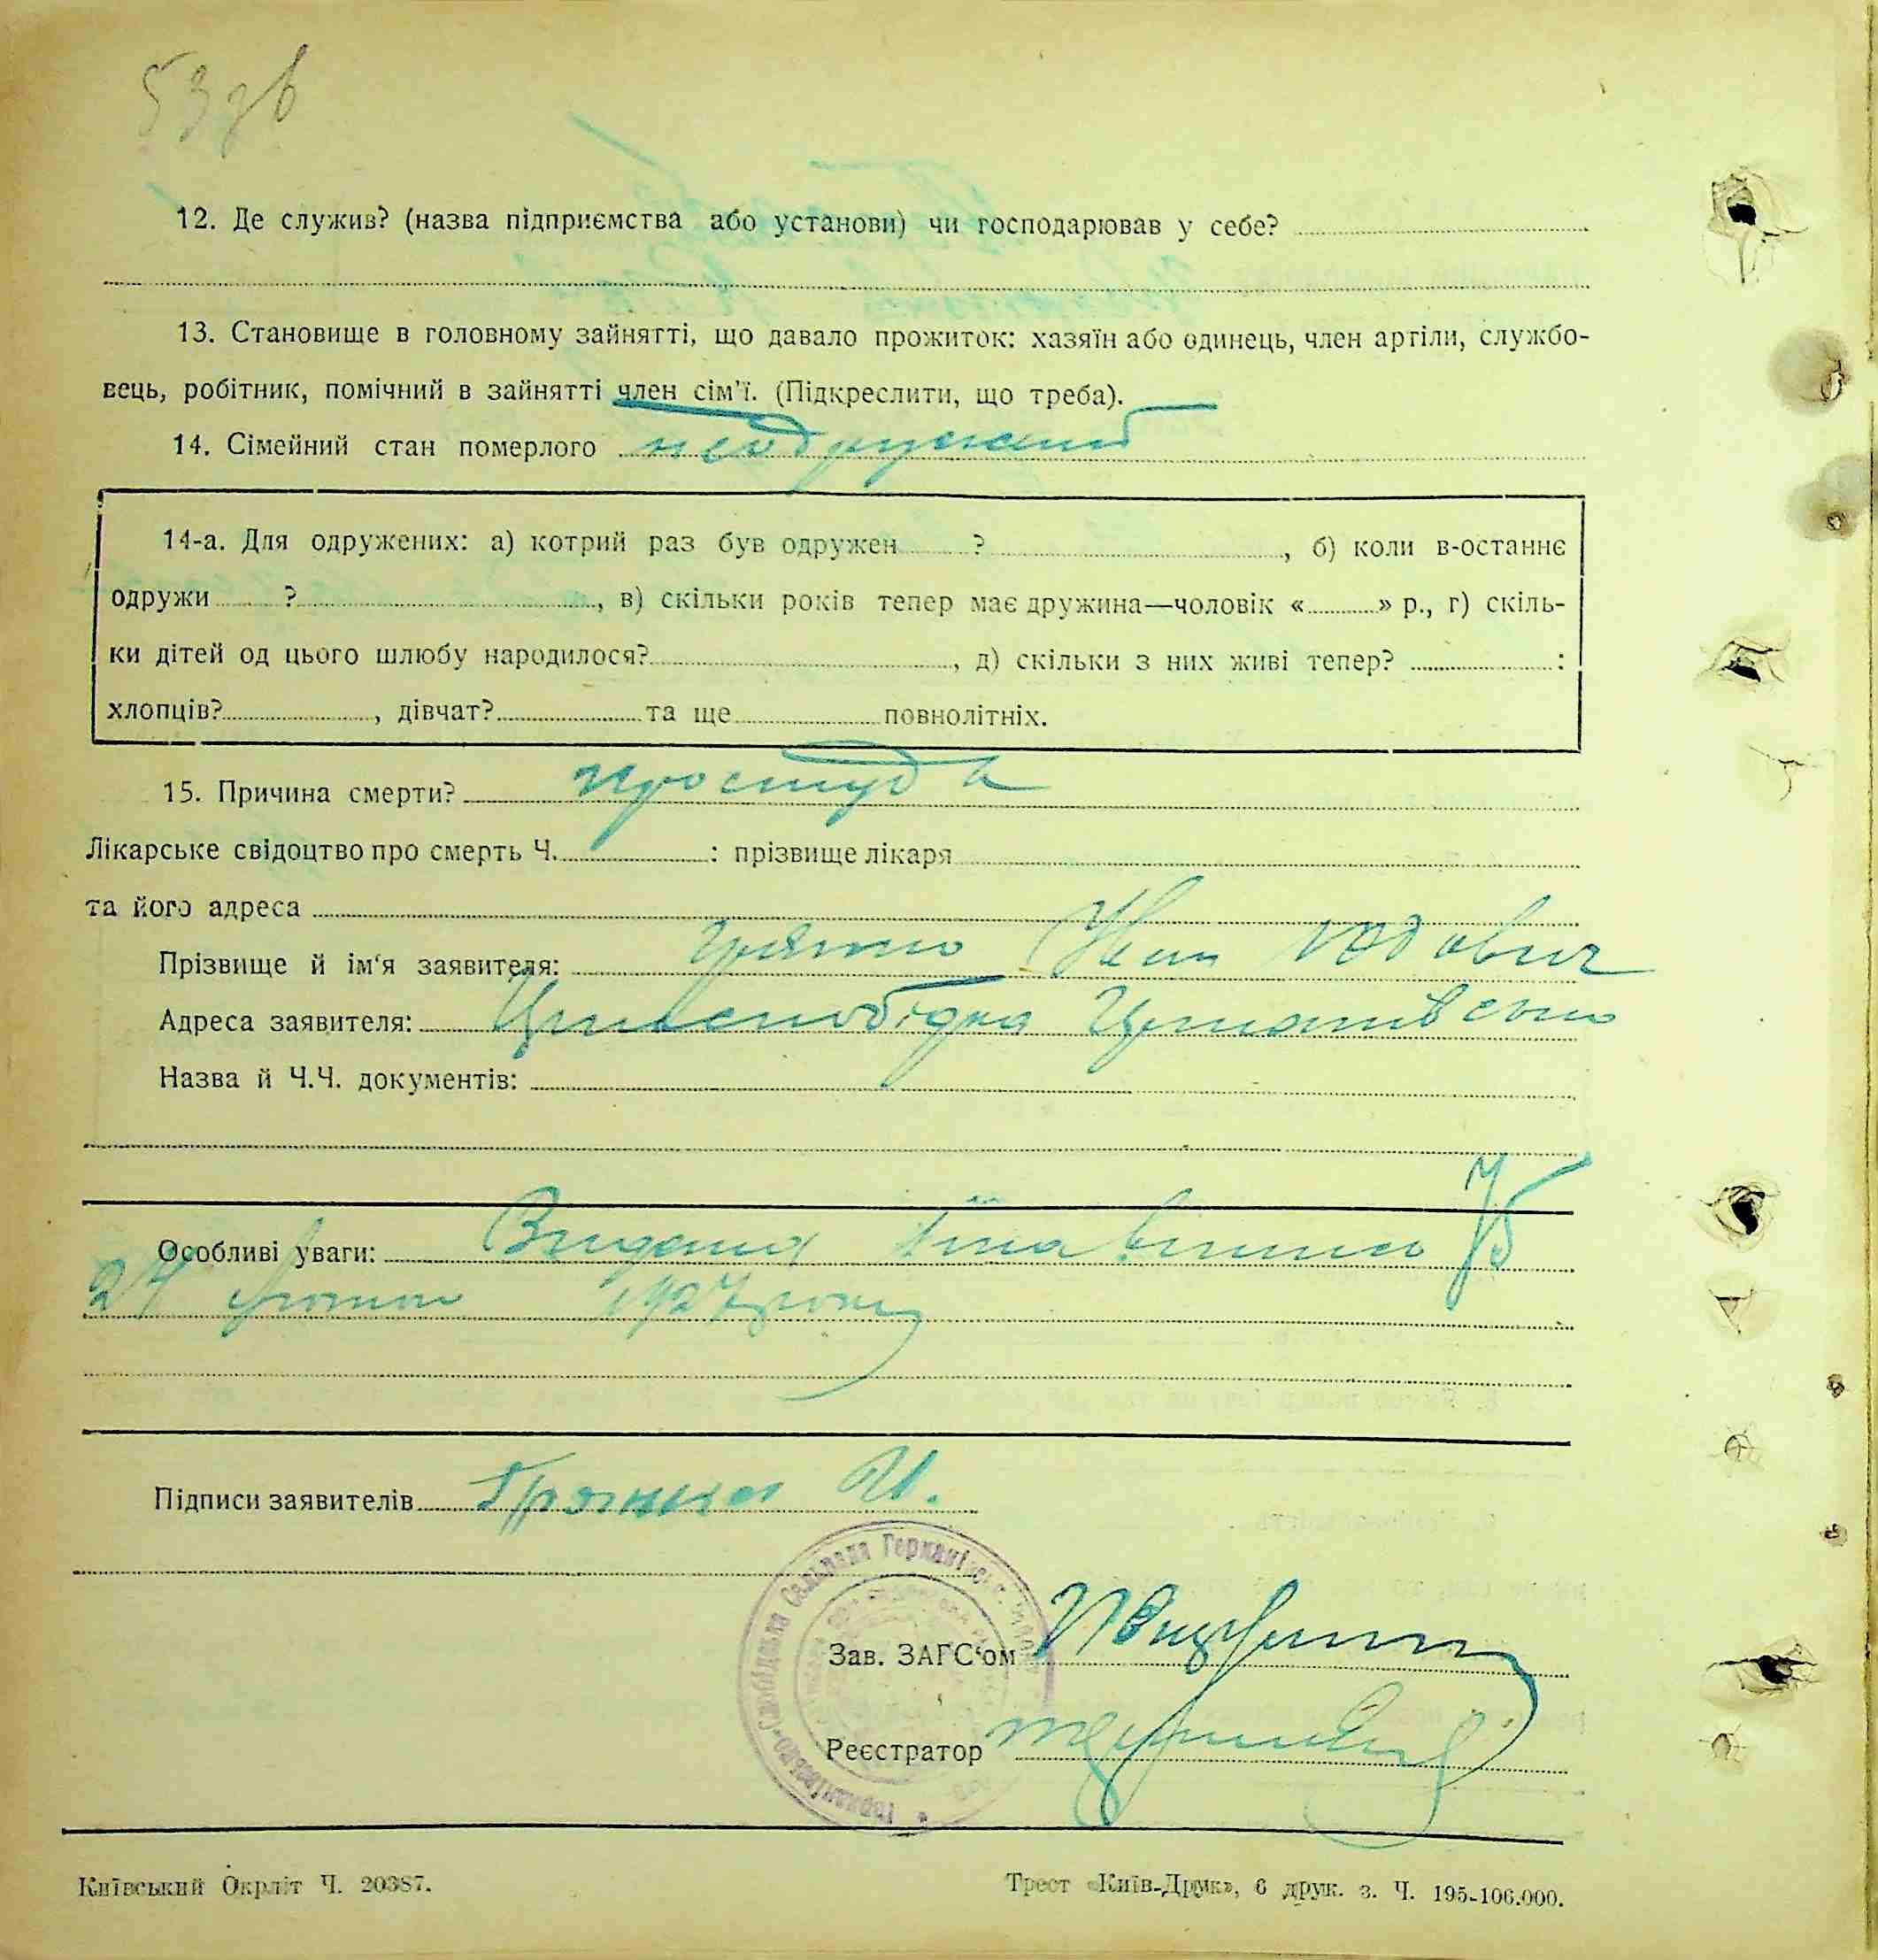 53зв
12. Де служив? (назва підприємства або установи) чи господарював у себе?
13. Становище в головному зайнятті, що давало прожиток: хазяїн або одинець, член артіли, службо-
вець, робітник, помічний в зайнятті член сім'ї. (Підкреслити, що треба).
14. Сімейний стан померлого неодружений
14-а. Для одружених: а) котрий раз був одружен ? , б) коли в-останнє
одружи ? , в) скільки років тепер має дружина—чоловік « » р., г) скіль-
ки дітей од цього шлюбу народилося? , д) скільки з них живі тепер? :
хлопців? , дівчат? та ще повнолітніх.
15. Причина смерти? простуда
Лікарське свідоцтво про смерть Ч. : прізвище лікаря
та його адреса
Прізвище й ім'я заявителя: Іван
Адреса заявителя:
Назва й Ч.Ч. документів:
Особливі уваги: Видана
24 лютого 1927 року
Підписи заявителів
Германівсько-Слобідська Сельрада Германівськ.
Зав. ЗАГС'ом
Реєстратор
Київський Окрліт Ч. 20387. Трест «Київ-Друк», 6 друк. з. Ч. 195-106.000.